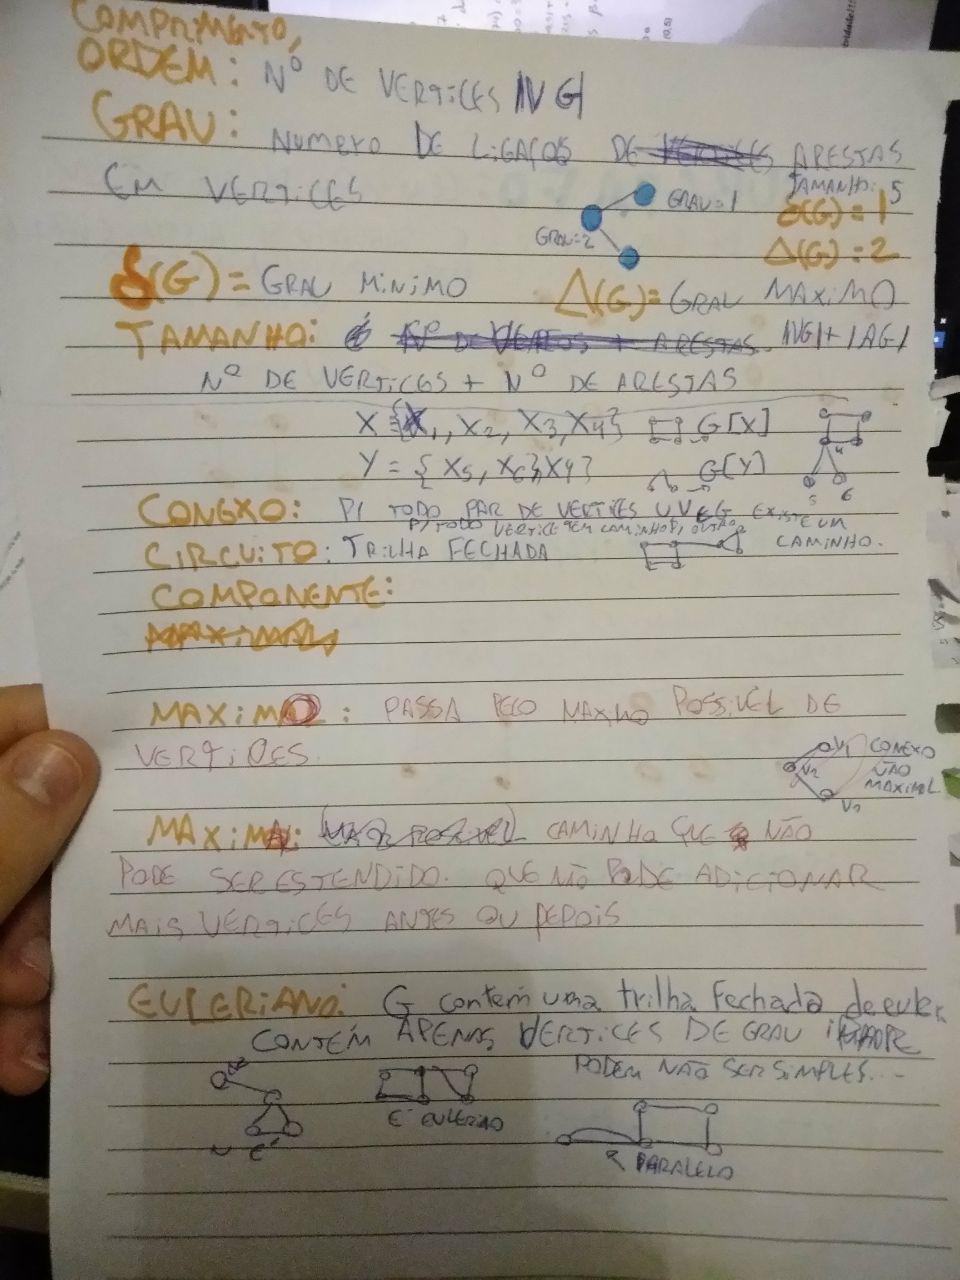 COMPRIMENTO,
ORDEM: Nº DE VERTICES |VG|
GRAU: NUMERO DE LIGAÇOS DE ARESTAS
EM VERTICES
TAMANHO: 5
GRAU=1
δ(G)=1
GRAU=2
Δ(G)=2
δ(G)= GRAU MINIMO Δ(G)= GRAU MAXIMO
TAMANHO: |VG|+|AG|
Nº DE VERTICES + Nº DE ARESTAS
X = {X1, X2, X3, X4} G[X]
Y = { X5, X6, X4} G[Y]
4
5 6
CONEXO: P/ TODO PAR DE VERTICES U V E G EXISTE UM
CAMINHO.
P/ TODO VERTICE TEM CAMINHO P/ OUTRO
CIRCUITO: TRILHA FECHADA
COMPONENTE:
MAXIMO: PASSA PELO MAXIMO POSSIVEL DE
VERTICES.
V1
V2
V3
CONEXO
NÃO
MAXIMAL
MAXIMAL: CAMINHO QUE NÃO
PODE SER ESTENDIDO. QUE NÃO PODE ADICIONAR
MAIS VERTICES ANTES OU DEPOIS
EULERIANO: G contém uma trilha fechada de euler
CONTÉM APENAS VERTICES DE GRAU
PODEM NÃO SER SIMPLES...
N É
É EULERIANO
PARALELO